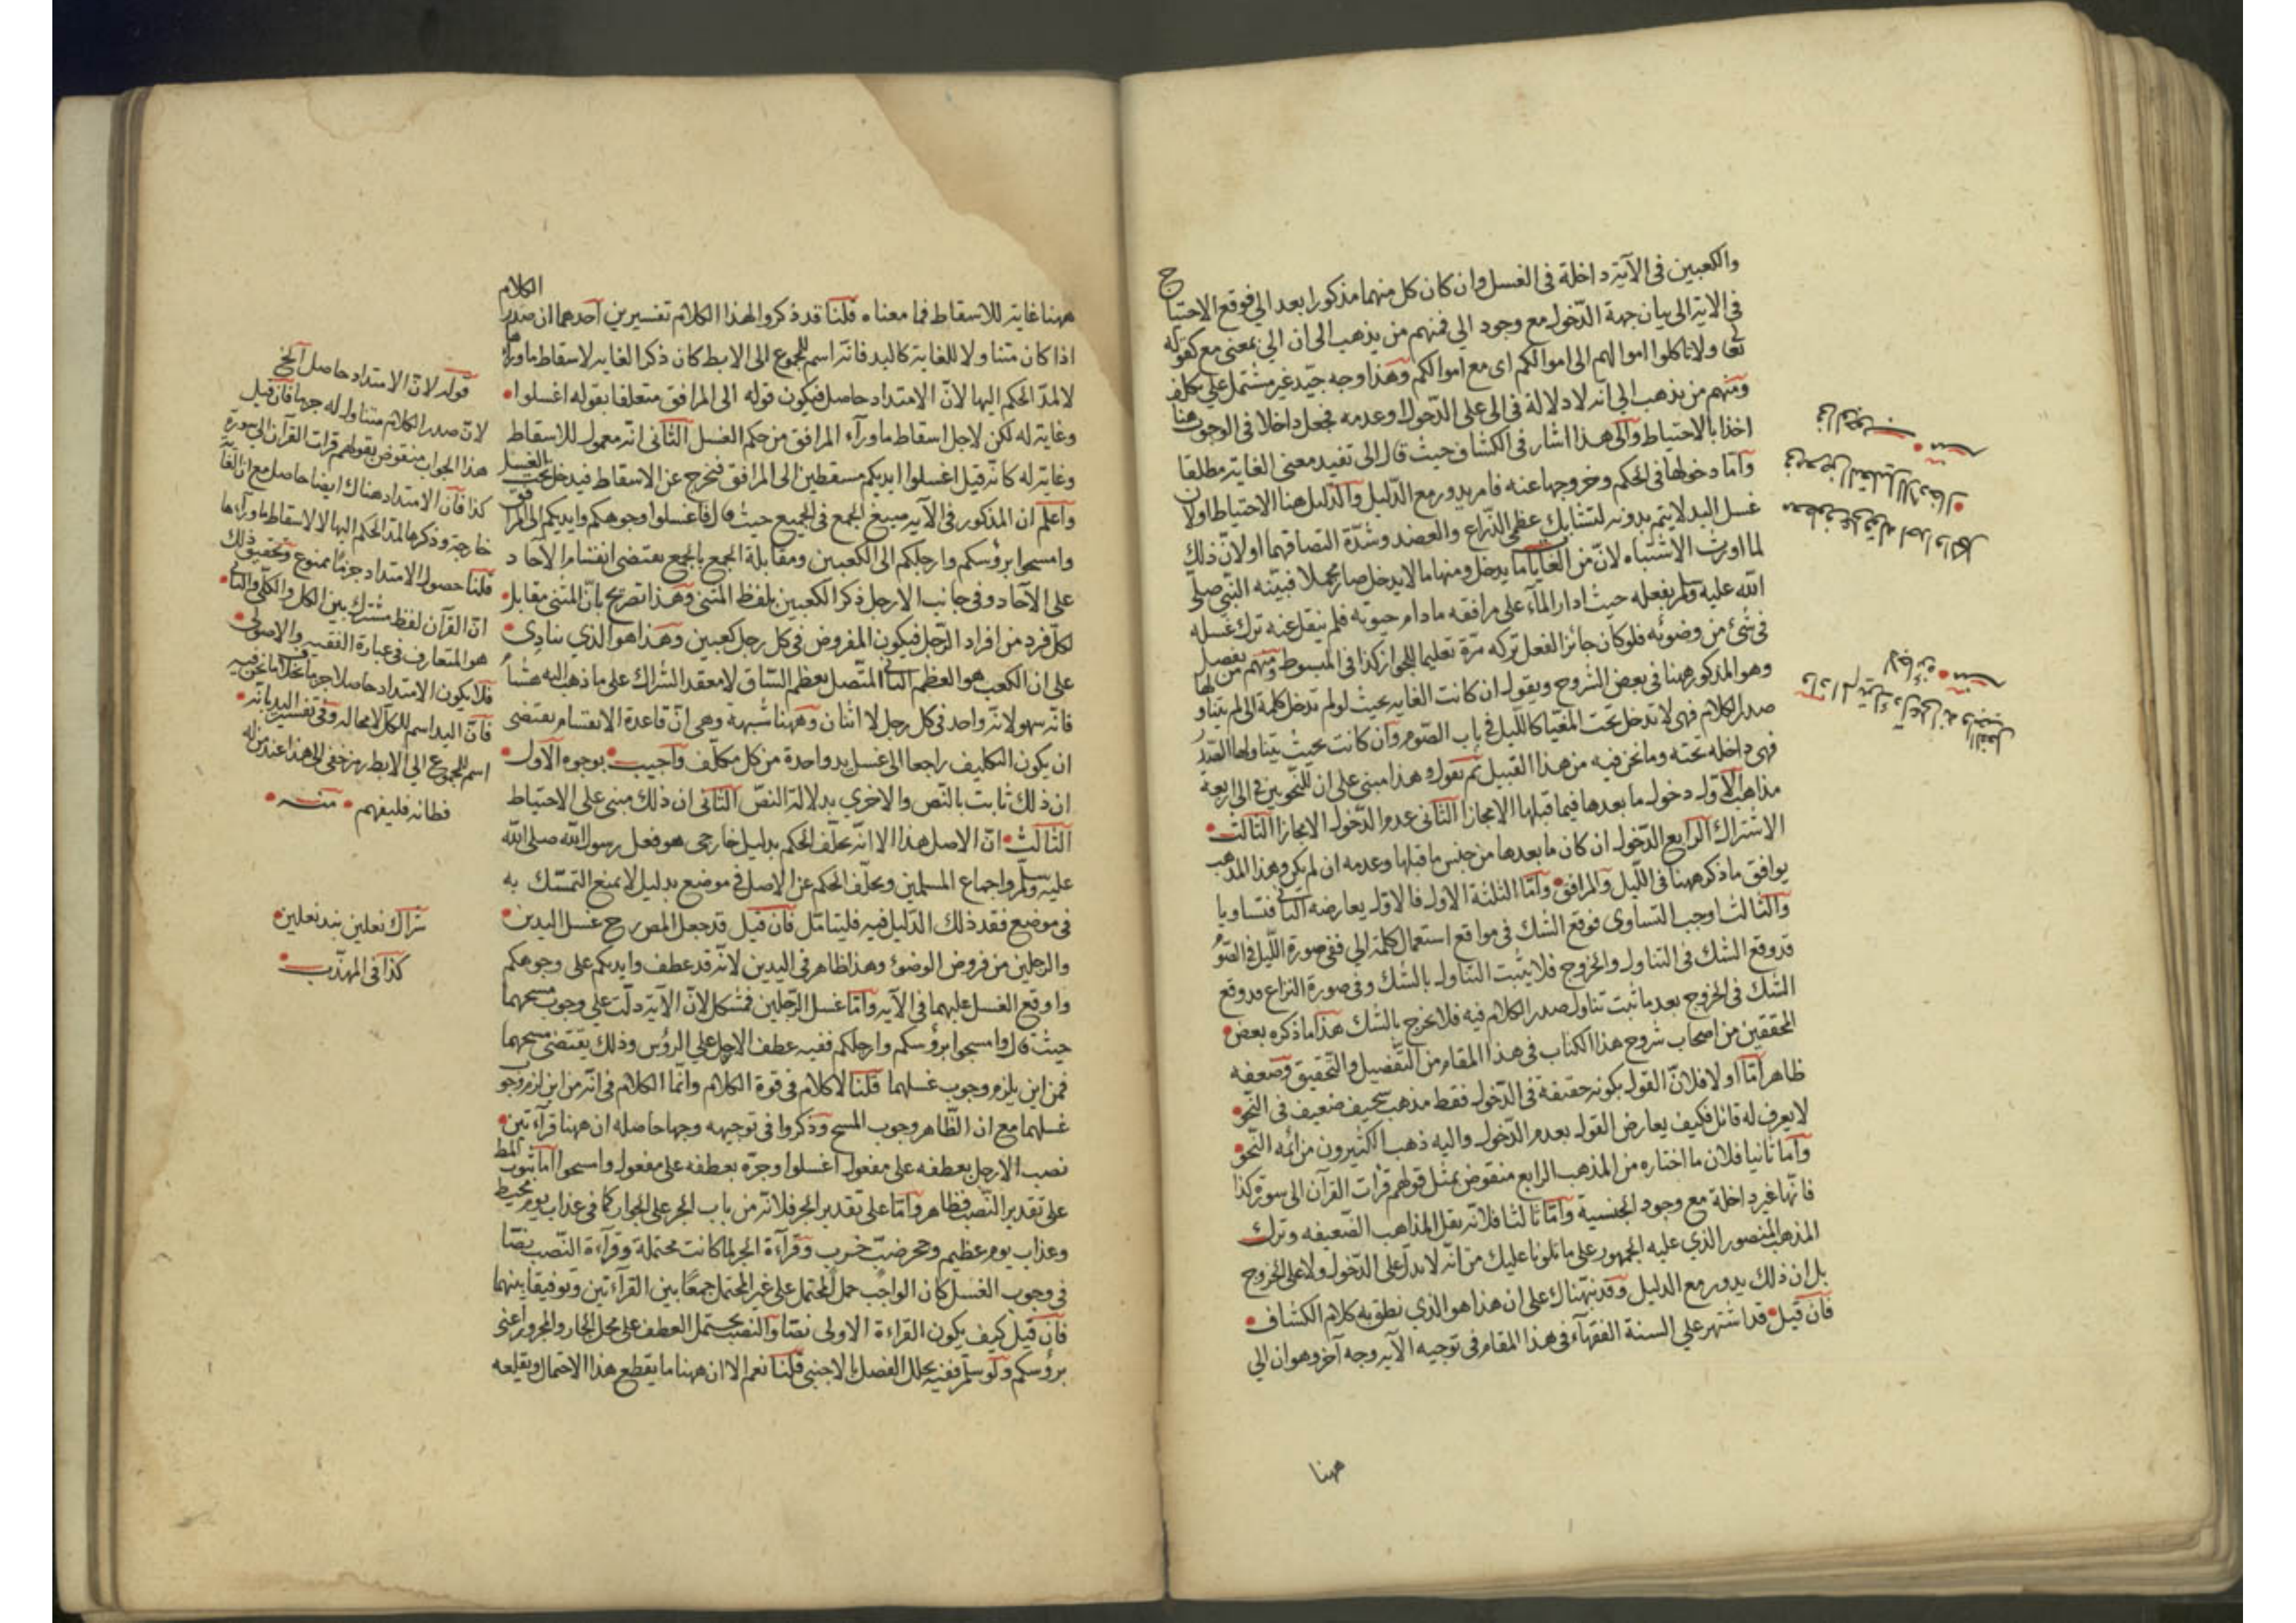 والكعبين في الآية داخلة في الغسل وان كان كل منهما مذكورا بعد الي فوقع الاحتيا
ج
في الاية الى بيان جهة الدّخول مع وجود الي فمنهم من يذهب الى ان الي بمعنى مع كقوله
تعا ولا تاكلوا اموالهم الى اموالكم اى مع اموالكم وهذا وجه جيّد غير مشتمل علي تكلف
ومنهم من يذهب الي انه لا دلالة في الى على الدّخول وعدمه فجعل داخلا في الوجوب هنا
اخذا بالاحتياط والى هذا اشار في الكشاف حيث قال الى تفيد معنى الغاية مطلقا
وامّا دخولها في الحكم وخروجها عنه فامر يدور مع الدّليل والدّليل هنا الاحتياط اولان
غسل اليد لا يتم بدونه لتشابك عظمى الذّراع والعضد وشدّة التصاقهما اولانّ ذلك
لما اورث الاشتباه لانّ من الغايات ما يدخل ومنها ما لا يدخل صار مجملا فبيّنه النبّي صلي
الله عليه وسلم بفعله حيث ادار المآء على مرافقه ما دام حيوته فلم ينقل عنه ترك غسله
في شئ من وضوئه فلو كان جائز الفعل تركه مرّة تعليما للجواز كذا في المبسوط ومنهم من يفصل
وهو المذكور ههنا في بعض الشروح ويقول ان كانت الغايه بحيث لو لم تدخل كلمة الى لم يتناولها
صدر الكلام فهى لا تدخل تحت المغيّا كالليل في باب الصّوم وان كانت بحيث يتناولها الصّدر
فهى داخله تحته وما نحن فيه من هذا القبيل ثم نقول وهذا مبنى على ان للنّحويين في الى اربعة
مذاهب الاوّل دخول ما بعدها فيما قبلها الا مجازا الثانى عدم الدّخول الا مجازا الثالث
الاشتراك الرابع الدّخول ان كان ما بعدها من جنس ما قبلها وعدمه ان لم يكن وهذا المذهب
يوافق ما ذكر ههنا في الليل والمرافق وامّا الثلثة الاول فالاوّل يعارضه الثانى فتساويا
والثالث اوجب التساوى فوقع الشك في مواقع استعمال كلمة الي ففي صورة اللّيل في الصّو
قد وقع الشك في التناول والخروج فلا يثبت التناول بالشك وفي صورة النزاع قد وقع
الشك في الخروج بعد ما ثبت تناول صدر الكلام فيه فلا يخرج بالشك هذا ما ذكره بعض
المحققين من اصحاب شروح هذا الكتاب في هذا المقام من التفصيل والتحقيق وضعفه
ظاهر امّا اولا فلانّ القول بكونه حقيقة في الدّخول فقط مذهب سخيف ضعيف في النّحو
لا يعرف له قائل فكيف يعارض القول بعدم الدّخول واليه ذهب الكثيرون من ائمه النّحو
وامّا ثانيا فلان ما اختاره من المذهب الرابع منقوض بمثل قولهم قرأت القرآن الى سورة كذا
فانّها غير داخلة مع وجود الجنسية وامّا ثالثا فلانّه نقل المذاهب الضّعيفه وترك
المذهب المنصور الذي عليه الجمهور على ما تلونا عليك من انّه لا يدل على الدّخول ولا على الخروج
بل ان ذلك يدور مع الدليل وقد نبّهناك على ان هذا هو الذي نطق به كلام الكشاف
فان قيل قد اشتهر علي السنة الفقهآء في هذا المقام في توجيه الآيه وجه آخر وهو ان الي
ههنا
ههنا غاية للاسقاط فما معناه قلنا قد ذكروا لهذا الكلام تفسيرين احدهما ان صدر الكلام
اذا كان متناولا للغاية كاليد فانّه اسم للمجموع الى الابط كان ذكر الغايه لاسقاط ماورآءها
لا لمدّ الحكم اليها لانّ الامتداد حاصل فيكون قوله الى المرافق متعلقا بقوله اغسلوا
وغاية له لكن لاجل اسقاط ماورآء المرافق من حكم الغسل الثّانى انّه معمول للاسقاط
وغاية له كانّه قيل اغسلوا ايديكم مسقطين الى المرافق فتخرج عن الاسقاط فيدخل تحت الغسل
واعلم ان المذكور في الآيه صيغ الجمع في الجميع حيث قال فاغسلوا وجوهكم وايديكم الى المرافق
وامسحوا برؤسكم وارجلكم الى الكعبين ومقابلة الجمع بالجمع يقتضى انقسام الآحاد
على الآحاد وفي جانب الارجل ذكر الكعبين بلفظ المثنى وهذا تصريح بانّ المثنى مقابل
لكلّ فرد من افراد الرّجل فيكون المفروض في كل رجل كعبين وهذا هو الذي ينادى
على ان الكعب هو العظم الناتى المتّصل بعظم السّاق لا معقد الشراك على ما ذهب اليه هشام
فانّه سهو لانّه واحد في كل رجل لا اثنان وههنا شبهة وهى انّ قاعدة الانقسام يقتضى
ان يكون التكليف راجعا الى غسل يد واحدة من كل مكلّف واجيب بوجوه الاول
ان ذلك ثابت بالنّص والاخري بدلالة النصّ الثانى ان ذلك مبنى على الاحتياط
الثالث انّ الاصل هذا الا انّه يخلّف الحكم بدليل خارجى هو فعل رسول الله صلى الله
عليه وسلّم واجماع المسلمين ويخلّف الحكم عن الاصل في موضع بدليل لا يمنع التمسّك به
في موضع فقد ذلك الدّليل فيه فليتامّل فان قيل قد جعل المصر ح غسل اليدين
والرجلين من فروض الوضوء وهذا ظاهر في اليدين لانّه قد عطف وايديكم على وجوهكم
واوقع الغسل عليهما في الآيه وامّا غسل الرّجلين فمشكل لانّ الآية دلّت علي وجوب مسحهما
حيث قال وامسحوا برؤسكم وارجلكم ففيه عطف الارجل علي الرؤس وذلك يقتضى مسحهما
فمن اين يلزم وجوب غسلهما قلنا لا كلام في قوة الكلام وانّما الكلام في انّه من اين لزم وجوب
غسلهما مع ان الظّاهر وجوب المسح وذكروا في توجيهه وجها حاصله ان ههنا قرآءتين
نصب الارجل بعطفه على مفعول اغسلوا وجرّه بعطفه على مفعول وامسحوا امّا ثبوت المط
على تقدير النّصب فظاهر وامّا على تقدير الجر فلانّه من باب الجر على الجوار كما في عذاب يوم محيط
وعذاب يوم عظيم وحجر ضبّ خرب وقرآءة الجر لما كانت محتملة وقرآءة النّصب نصّا
في وجوب الغسل كان الواجب حمل المحتمل على غير المحتمل جمعًا بين القرآءتين وتوفيقا بينهما
فان قيل كيف يكون القراءة الاولى نصّا والنصب يحتمل العطف على محل الجار والمجرور اعنى
برؤسكم ولو سلّم ففيه تخلل الفصل بالاجنبى قلنا نعم الا ان ههنا ما يقطع هذا الاحتمال ويقلعه
قوله لانّ الامتداد حاصل الخ
لانّ صدر الكلام متناول له جزما فان قيل
هذا الجواب منقوض بقولهم قرات القرآن الى سورة
كذا فان الامتداد هناك ايضا حاصل مع ان الغاية
خارجة وذكرها لمدّ الحكم اليها لا لاسقاط ماورآءها
قلنا حصول الامتداد جزمًا ممنوع وتحقيق ذلك
انّ القرآن لفظ مشترك بين الكل والكلّى والثانى
هو المتعارف في عبارة الفقيه والاصولى
فلا يكون الامتداد حاصلا جزما بخلاف ما نحن فيه
فانّ اليد اسم للكلّ لا محاله وفي تفسير اليد بانّه
اسم للمجموع الي الابط رمز خفى الى هذا عند من له
فطانه فليفهم منه
شراك نعلين بند نعلين
كذا في المهذّب